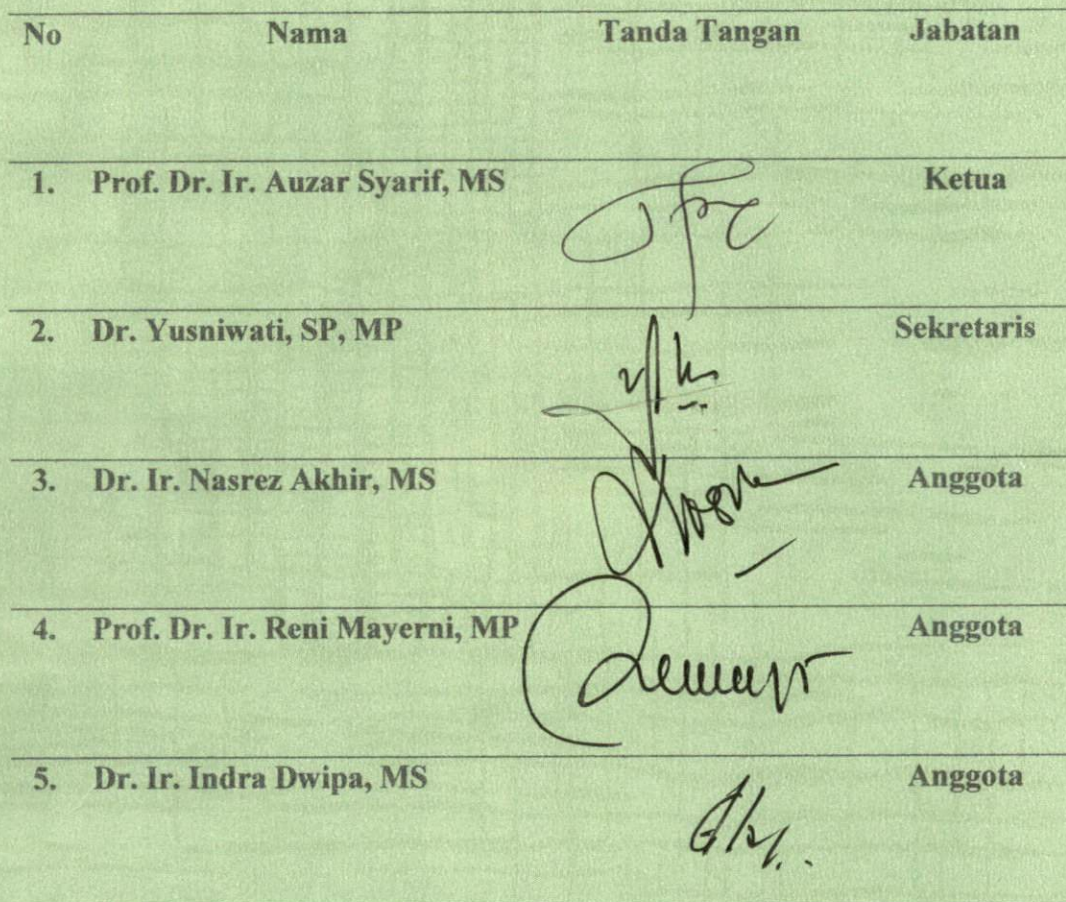 No Nama Tanda Tangan Jabatan
1. Prof. Dr. Ir. Auzar Syarif, MS Ketua
2. Dr. Yusniwati, SP, MP Sekretaris
3. Dr. Ir. Nasrez Akhir, MS Anggota
4. Prof. Dr. Ir. Reni Mayerni, MP Anggota
5. Dr. Ir. Indra Dwipa, MS Anggota